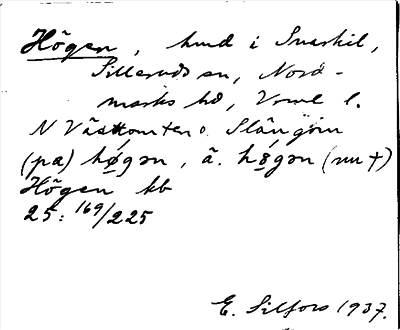 Högen, hmd i Svaskil,
Silleruds sn, Nord-
marks hd, Vrml l.
N Västtomten o. Slängom
(pa) høgən, ä. høgən (nu †)
Högen kb
25: 169/225
E. Silfors 1937.